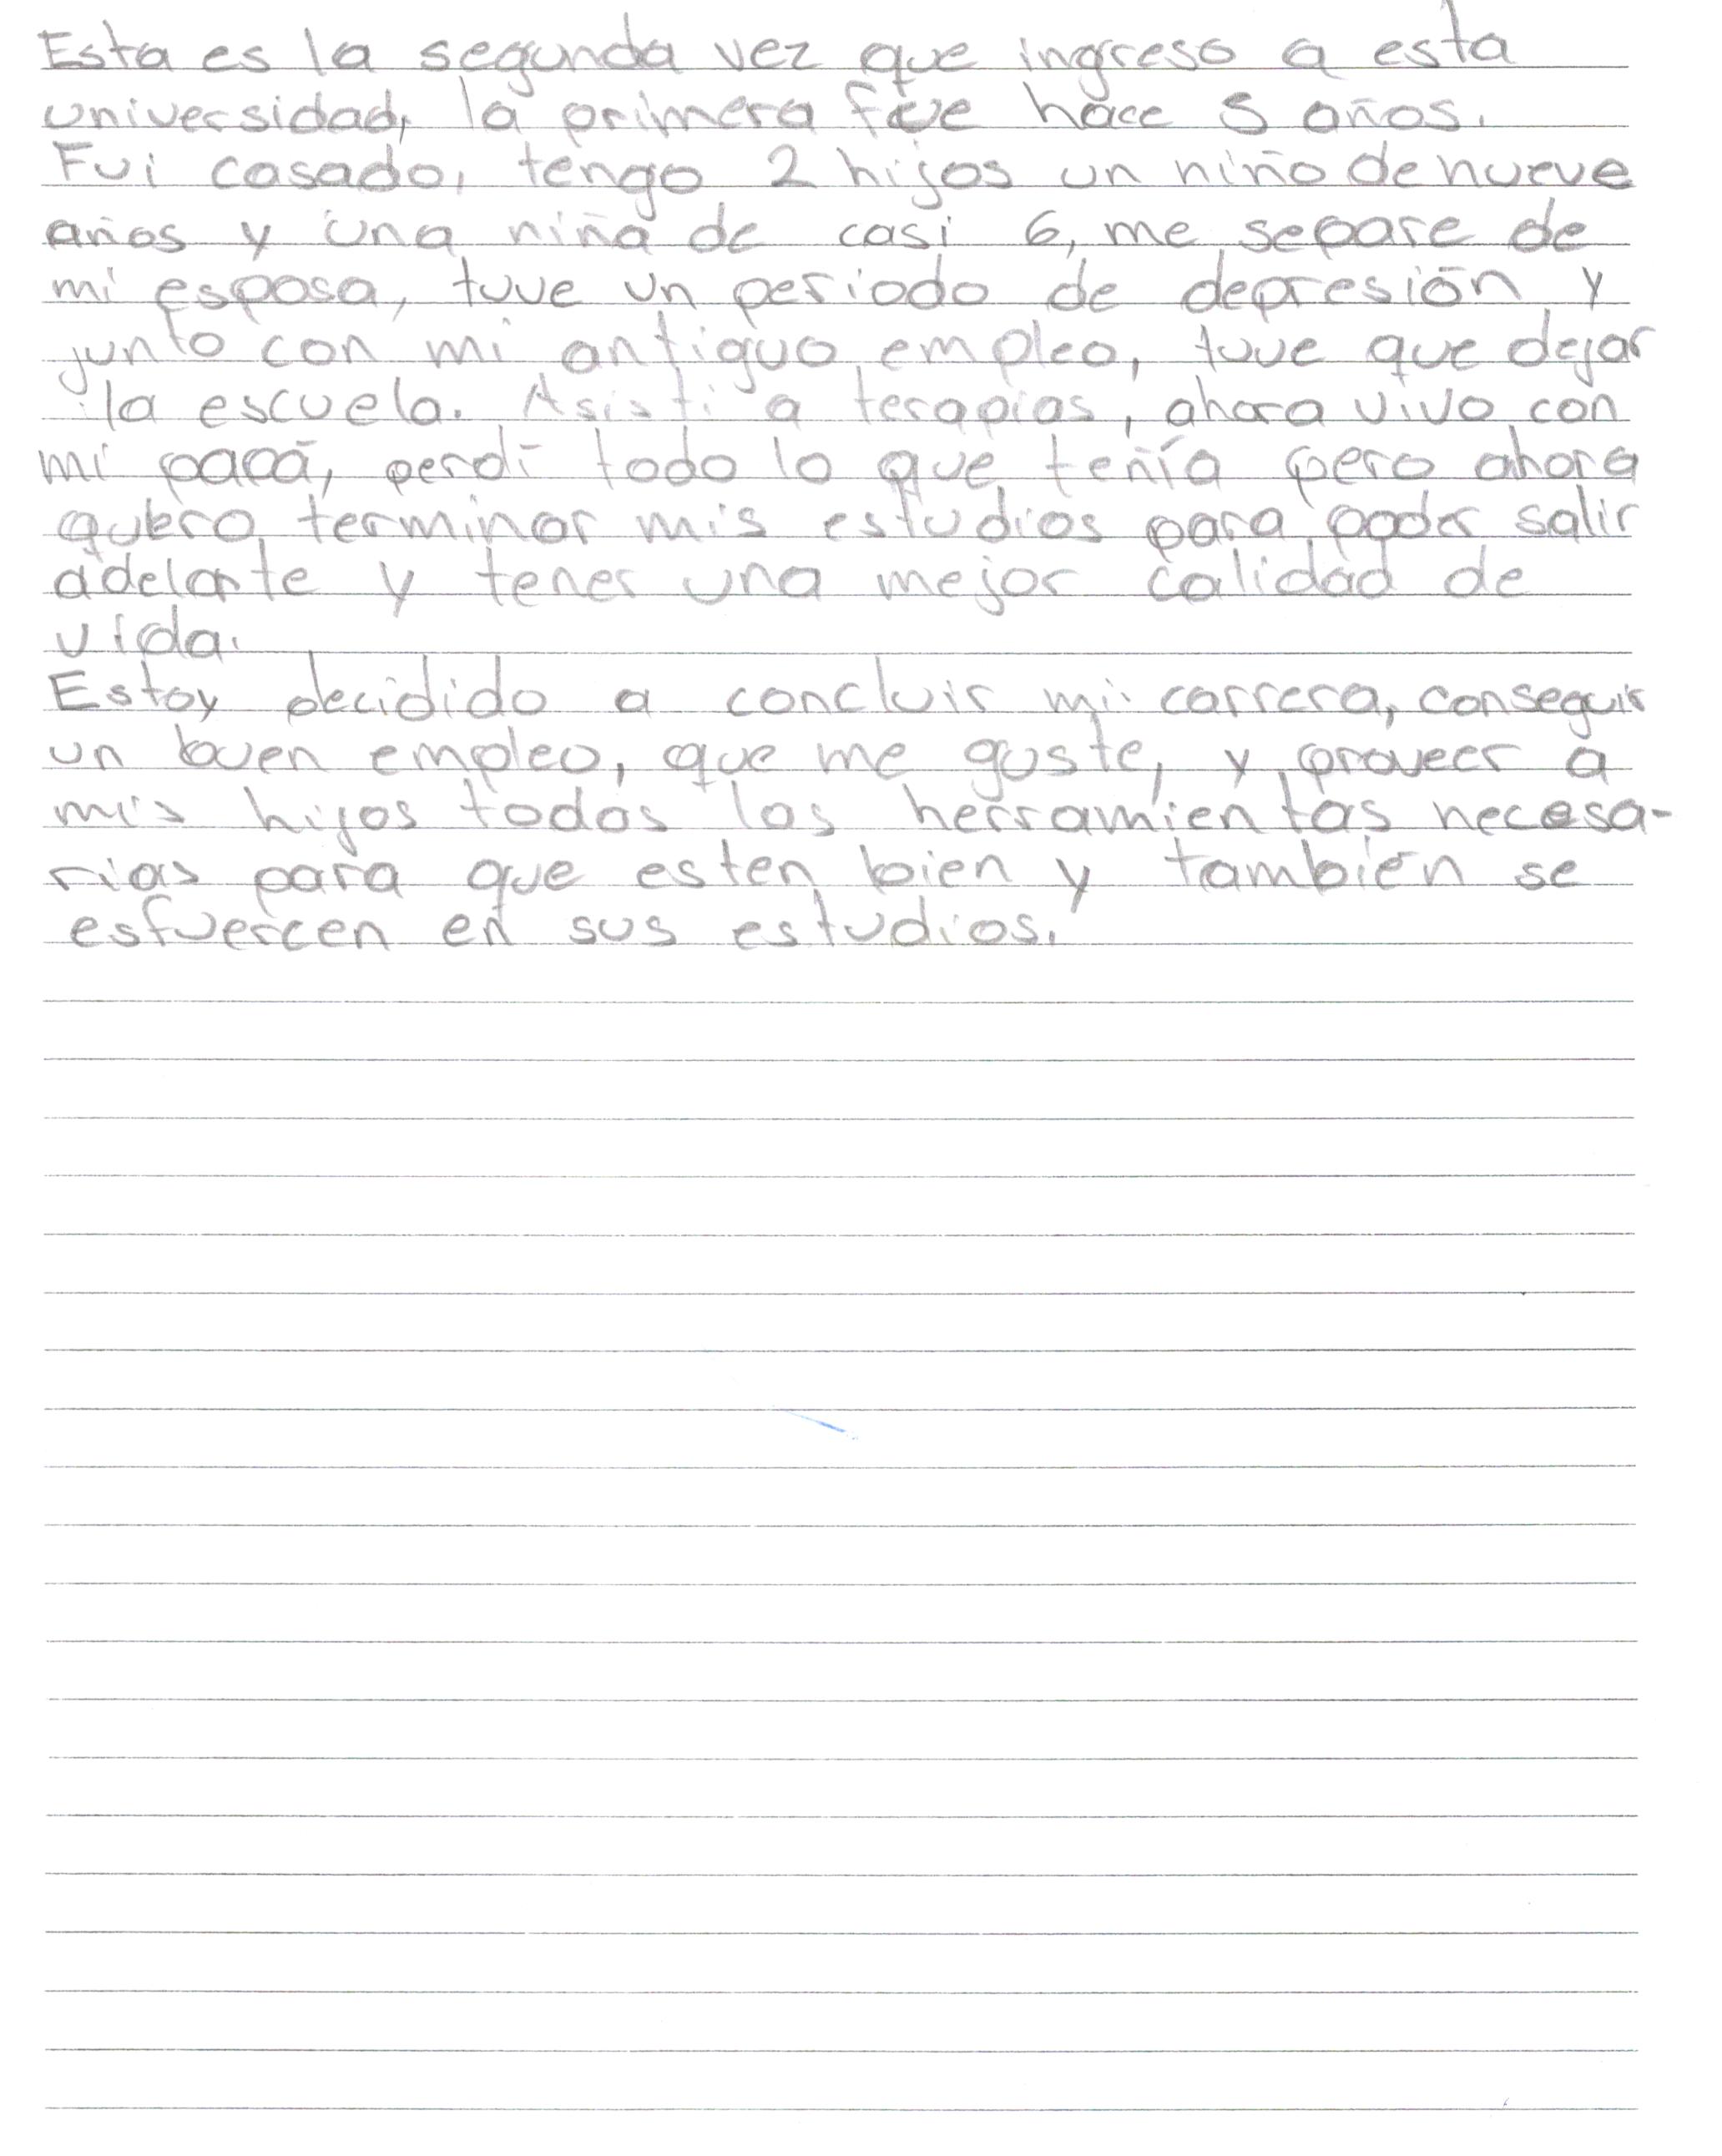 Esta es la segunda vez que ingreso a esta
universidad, la primera fue hace 5 años.
Fui casado, tengo 2 hijos un niño de nueve
años y una niña de casi 6, me separe de
mi esposa, tuve un periodo de depresión y
junto con mi antiguo empleo, tuve que dejar
la escuela. Asisti a terapias, ahora vivo con
mi papá, perdí todo lo que tenía pero ahora
quiero terminar mis estudios para poder salir
adelante y tener una mejor calidad de
vida.
Estoy decidido a concluir mi carrera, conseguir
un buen empleo, que me guste, y proveer a
mis hijos todas las herramientas necesa-
rias para que esten bien y también se
esfuercen en sus estudios.